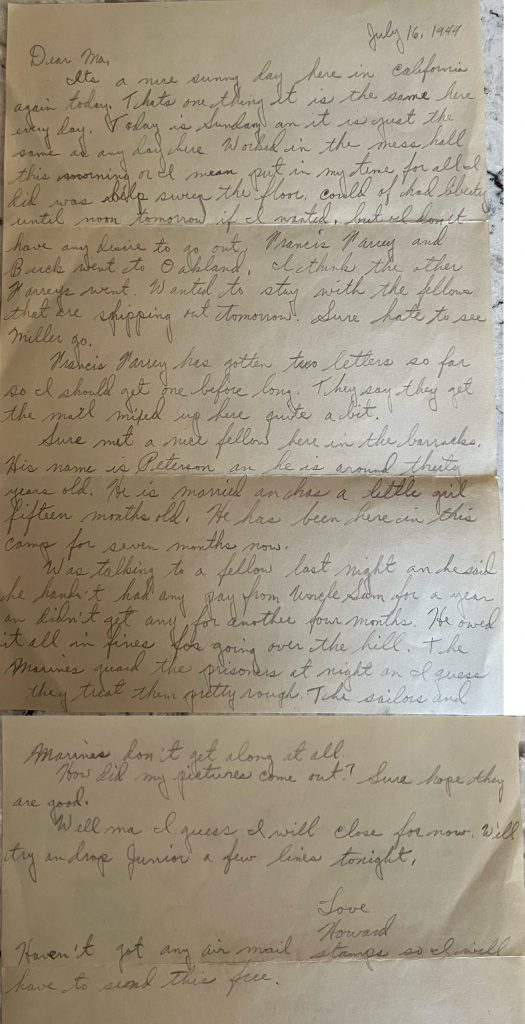 July 16, 1944
Dear Ma,
Its a nice sunny day here in California
again today. Thats one thing it is the same here
every day. Today is Sunday an it is just the
same as any day here. Worked in the mess hall
this morning or I mean put in my time for all I
did was help sweep the floor. Could of had liberty
until noon tomorrow if I wanted, but I don't
have any desire to go out. Francis Varrey and
Buick went to Oakland. I think the other
Varreys went. Wanted to stay with the fellows
that are shipping out tomorrow. Sure hate to see
Miller go.
Francis Varrey has gotten two letters so far
so I should get one before long. They say they get
the mail mixed up here quite a bit.
Sure met a nice fellow here in the barracks.
His name is Peterson an he is around thirty
years old. He is married an has a little girl
fifteen months old. He has been here in this
camp for seven months now.
Was talking to a fellow last night an he said
he hadn't had any pay from Uncle Sam for a year
an didn't get any for another four months. He owed
it all in fines for going over the hill. The
Marines guard the prisoners at night an I guess
they treat them pretty rough. The sailors and
Marines don't get along at all.
How did my pictures come out? Sure hope they
are good.
Well ma I guess I will close for now. Will
try an drop Junior a few lines tonight.
Love
Howard
Haven't got any air mail stamps so I will
have to send this free.